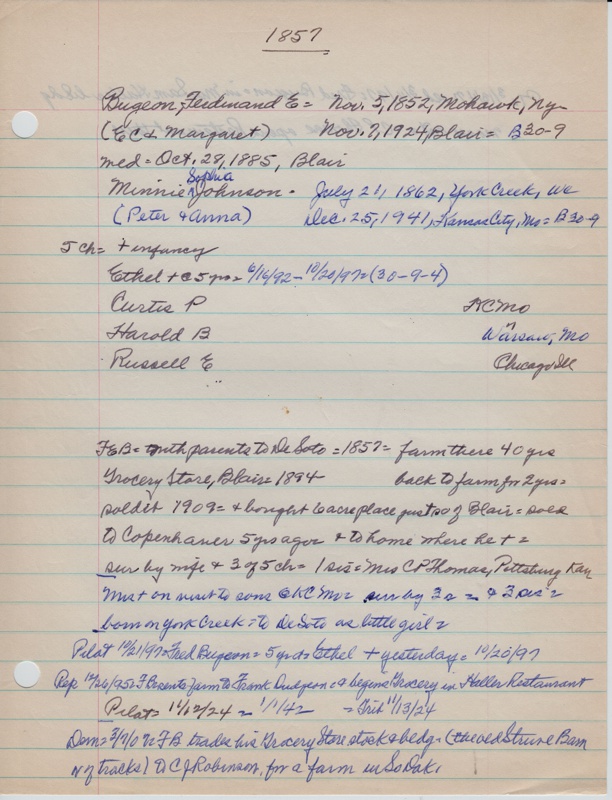 1857
Bugeon, Ferdinand E = Nov. 5, 1852, Mohawk, Ny
(E C & Margaret) Nov. 7, 1924, Blair = B30-9
med = Oct. 28, 1885, Blair
Minnie Sophia Johnson. July 21, 1862, York Creek, We
(Peter & Anna) Dec. 25, 1941, Kansas City, Mo = B30-9
5 ch = + infancy
Ethel + @ 5 yrs = 6/16/92 - 10/20/97 = (30-9-4)
Curtis P KC Mo
Harold B Warsaw, Mo
Russell E Chicago Ill
FEB = with parents to DeSoto = 1857 = farm there 40 yrs
Grocery Store, Blair = 1894 back to farm for 2 yrs =
sold it 1909 = & bought 6 acre place just so of Blair = sold
to Copenhaver 5 yrs ago & to home where he + =
sur by wife & 3 of 5 ch = 1 sis = Mrs C P Thomas, Pittsburg Kan
Mrs + on visit to sons @ KC Mo = sur by 3 s = & 3 sis =
born on York Creek = to DeSoto as little girl =
Pilot 10/21/97 = Fred Bugeon = 5 yrd = Ethel + yesterday = 10/20/97
Rep 12/26/95 = F B rents farm to Frank Dudgeon & begins Grocery in Haller Restaurant
Pilot = 11/12/24 = 1/1/42 = Trib 11/13/24
Dem = 3/7/02 F B trades his Grocery Store stock & bldg = (the old Strine Barn
N of tracks) to C J Robinson, for a farm in So Dak.